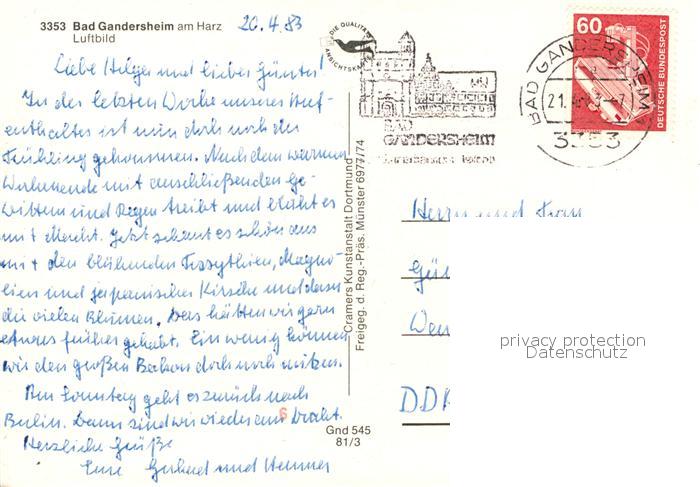 3353 Bad Gandersheim am Harz
Luftbild
20.4.83
Liebe Helga und lieber Günter!
In der letzten Woche unseres Auf-
enthaltes ist nun doch noch der
Frühling gekommen. Nach dem warmen
Wochenende mit anschließenden Ge-
wittern und Regen treibt und blüht es
mit Macht. Jetzt schaut es schön aus
mit den blühenden Forsythien, Magno-
lien und japanischen Kirsche und dazu
die vielen Blumen. Das hätten wir gern
etwas früher gehabt. Ein wenig können
wir den großen Balkon doch noch nutzen.
Am Sonntag geht es zurück nach
Berlin. Dann sind wir wieder am Draht.
Herzliche Grüße
Eure Gerhard und
DIE QUALITÄTS
ANSICHTSKARTE
BAD
GANDERSHEIM
60
DEUTSCHE BUNDESPOST
BAD GANDERSHEIM
21.
3353
Cramers Kunstanstalt Dortmund
Freigeg. d. Reg.-Präs. Münster 6977/74
Herrn und Frau
Gün
DDR
privacy protection
Datenschutz
6
Gnd 545
81/3